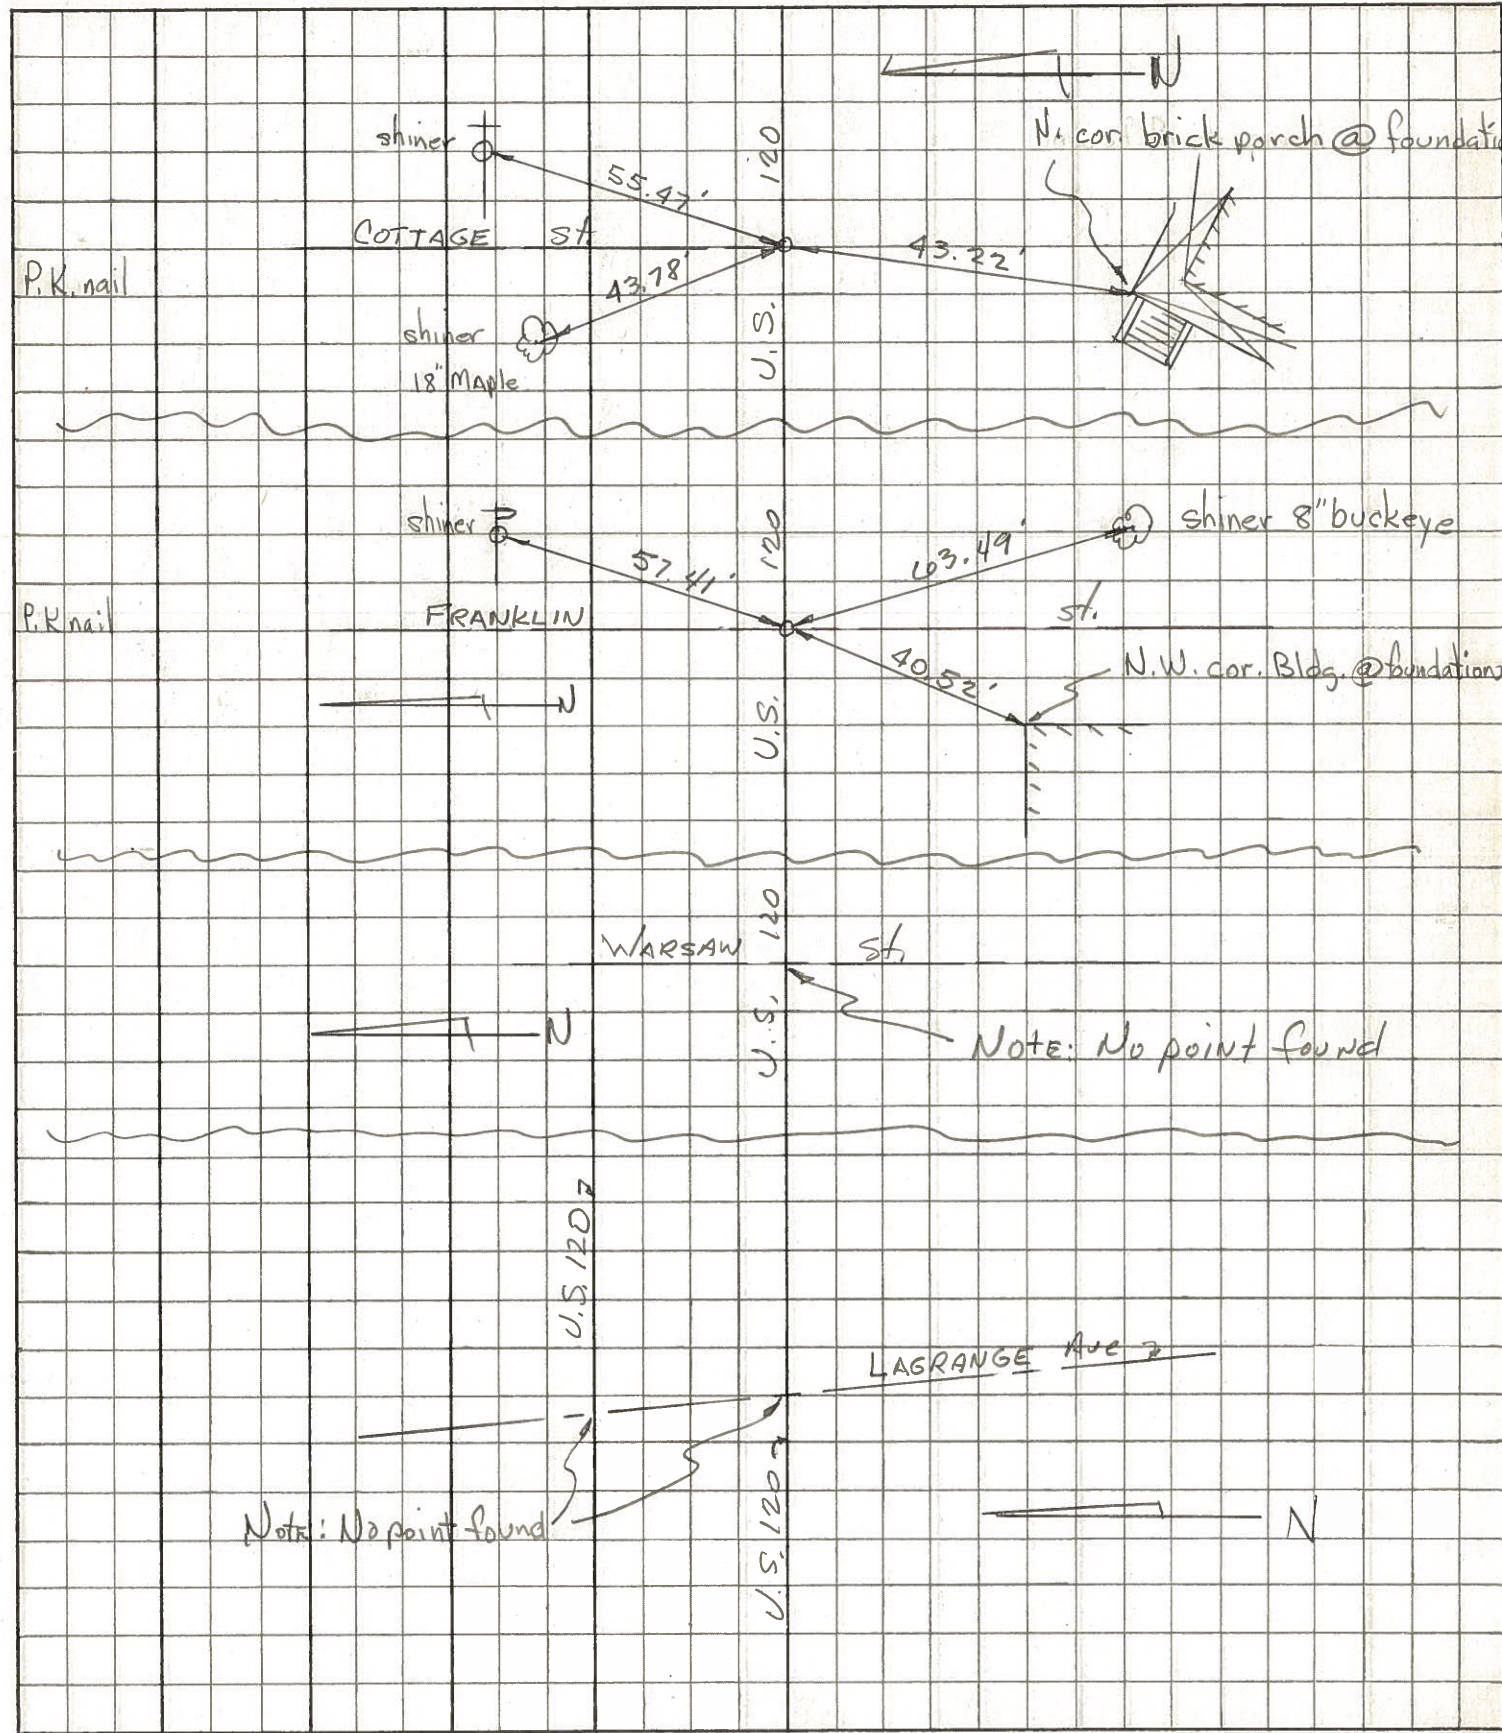 N
N. cor. brick porch @ foundatio
shiner
55.47'
U.S. 120
COTTAGE St.
43.22'
P.K. nail
43.78'
shiner
18" Maple
shiner
57.41'
U.S. 120
63.49'
shiner 8" buckeye
P.K nail
FRANKLIN st.
40.52'
N.W. cor. Bldg. @ foundation
N
WARSAW St.
U.S. 120
N
Note: No point found
U.S. 120
LAGRANGE Ave
U.S. 120
Note: No point found
N